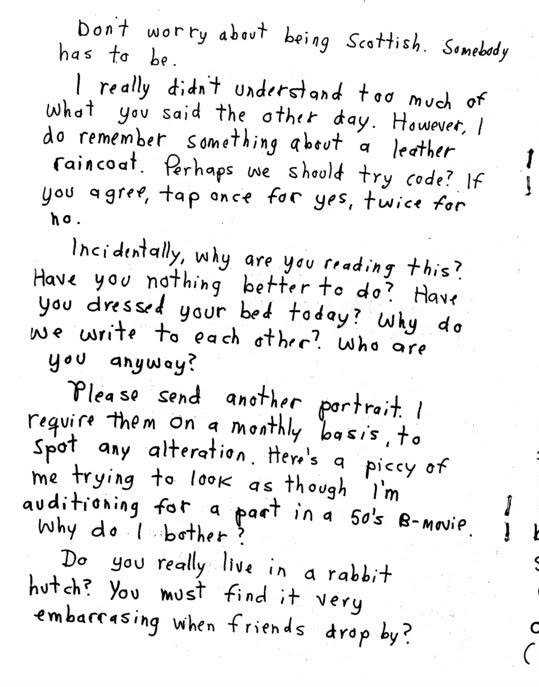 Don't worry about being Scottish. Somebody
has to be.
I really didn't understand too much of
what you said the other day. However, I
do remember something about a leather
raincoat. Perhaps we should try code? If
you agree, tap once for yes, twice for
no.
Incidentally, why are you reading this?
Have you nothing better to do? Have
you dressed your bed today? Why do
we write to each other? Who are
you anyway?
Please send another portrait. I
require them on a monthly basis, to
spot any alteration. Here's a piccy of
me trying to look as though I'm
auditioning for a part in a 50's B-movie.
Why do I bother?
Do you really live in a rabbit
hutch? You must find it very
embarrasing when friends drop by?